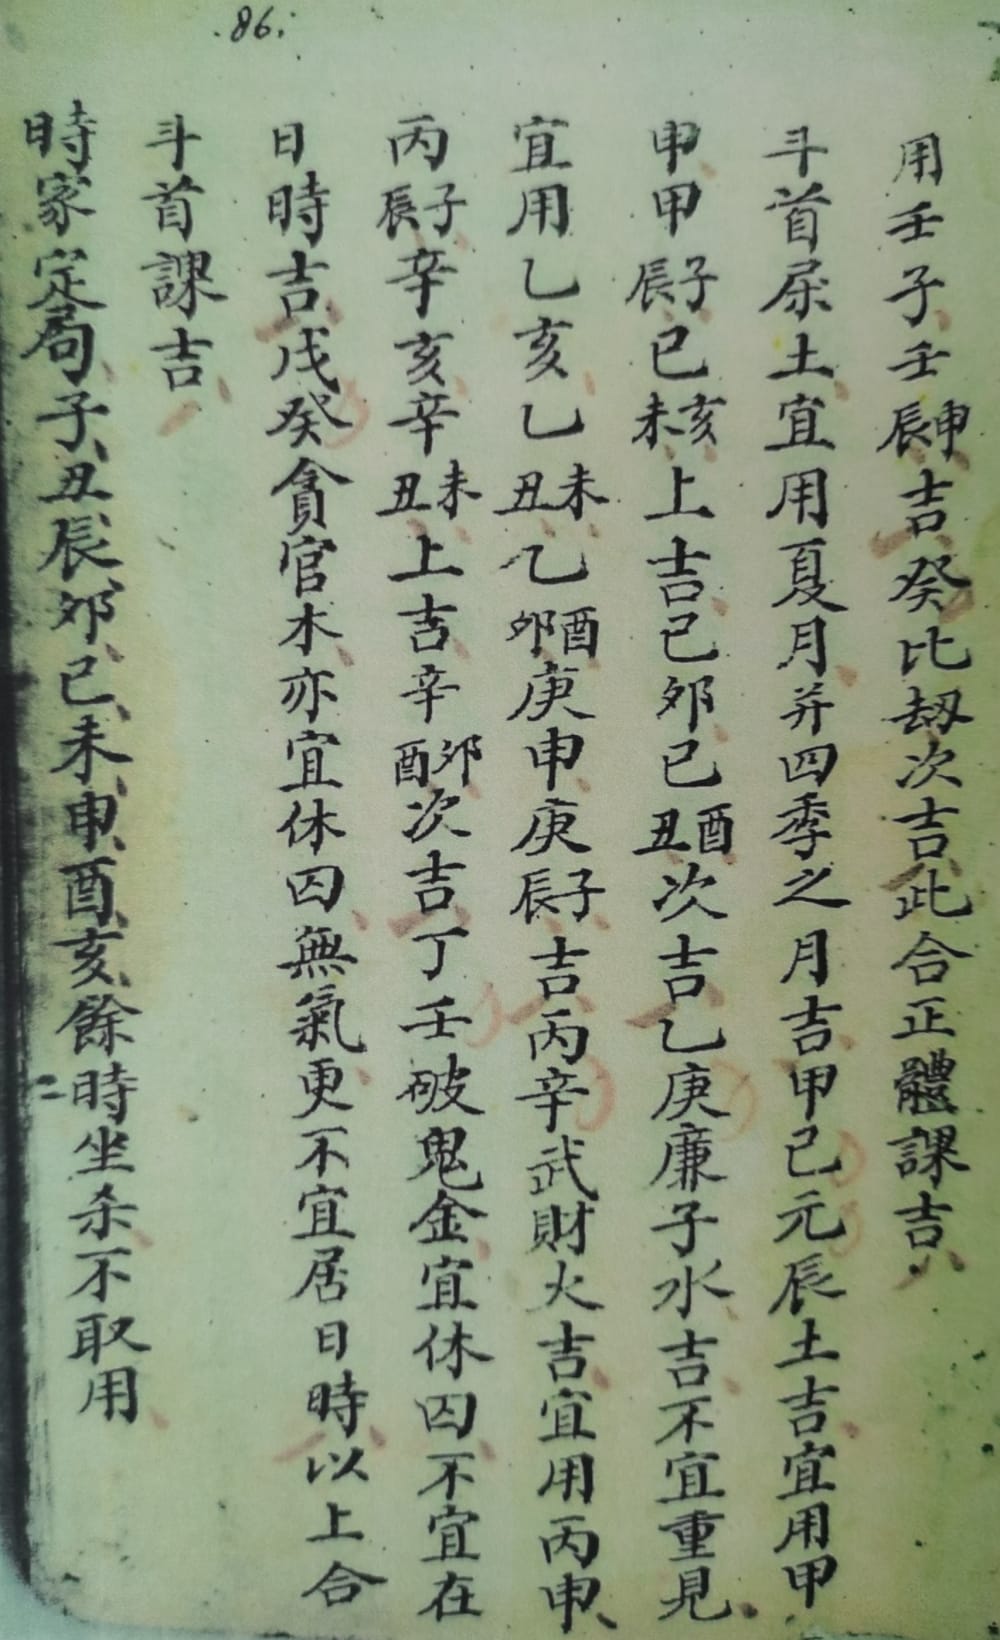 86.
用壬子壬申辰吉癸比劫次吉此合正體課吉
斗首屎土宜用夏月并四季之月吉甲己元辰土吉宜用甲
申甲子辰已亥未上吉己卯已酉丑次吉乙庚廉子水吉不宜重見
宜用乙亥乙未丑乙酉卯庚申庚子辰吉丙辛武財火吉宜用丙申
丙子辰辛亥辛未丑上吉辛卯酉次吉丁壬破鬼金宜休囚不宜在
日時吉戊癸貪官木亦宜休囚無氣更不宜居日時以上合
斗首課吉
時家定局子丑辰卯已未申酉亥餘時坐杀不取用